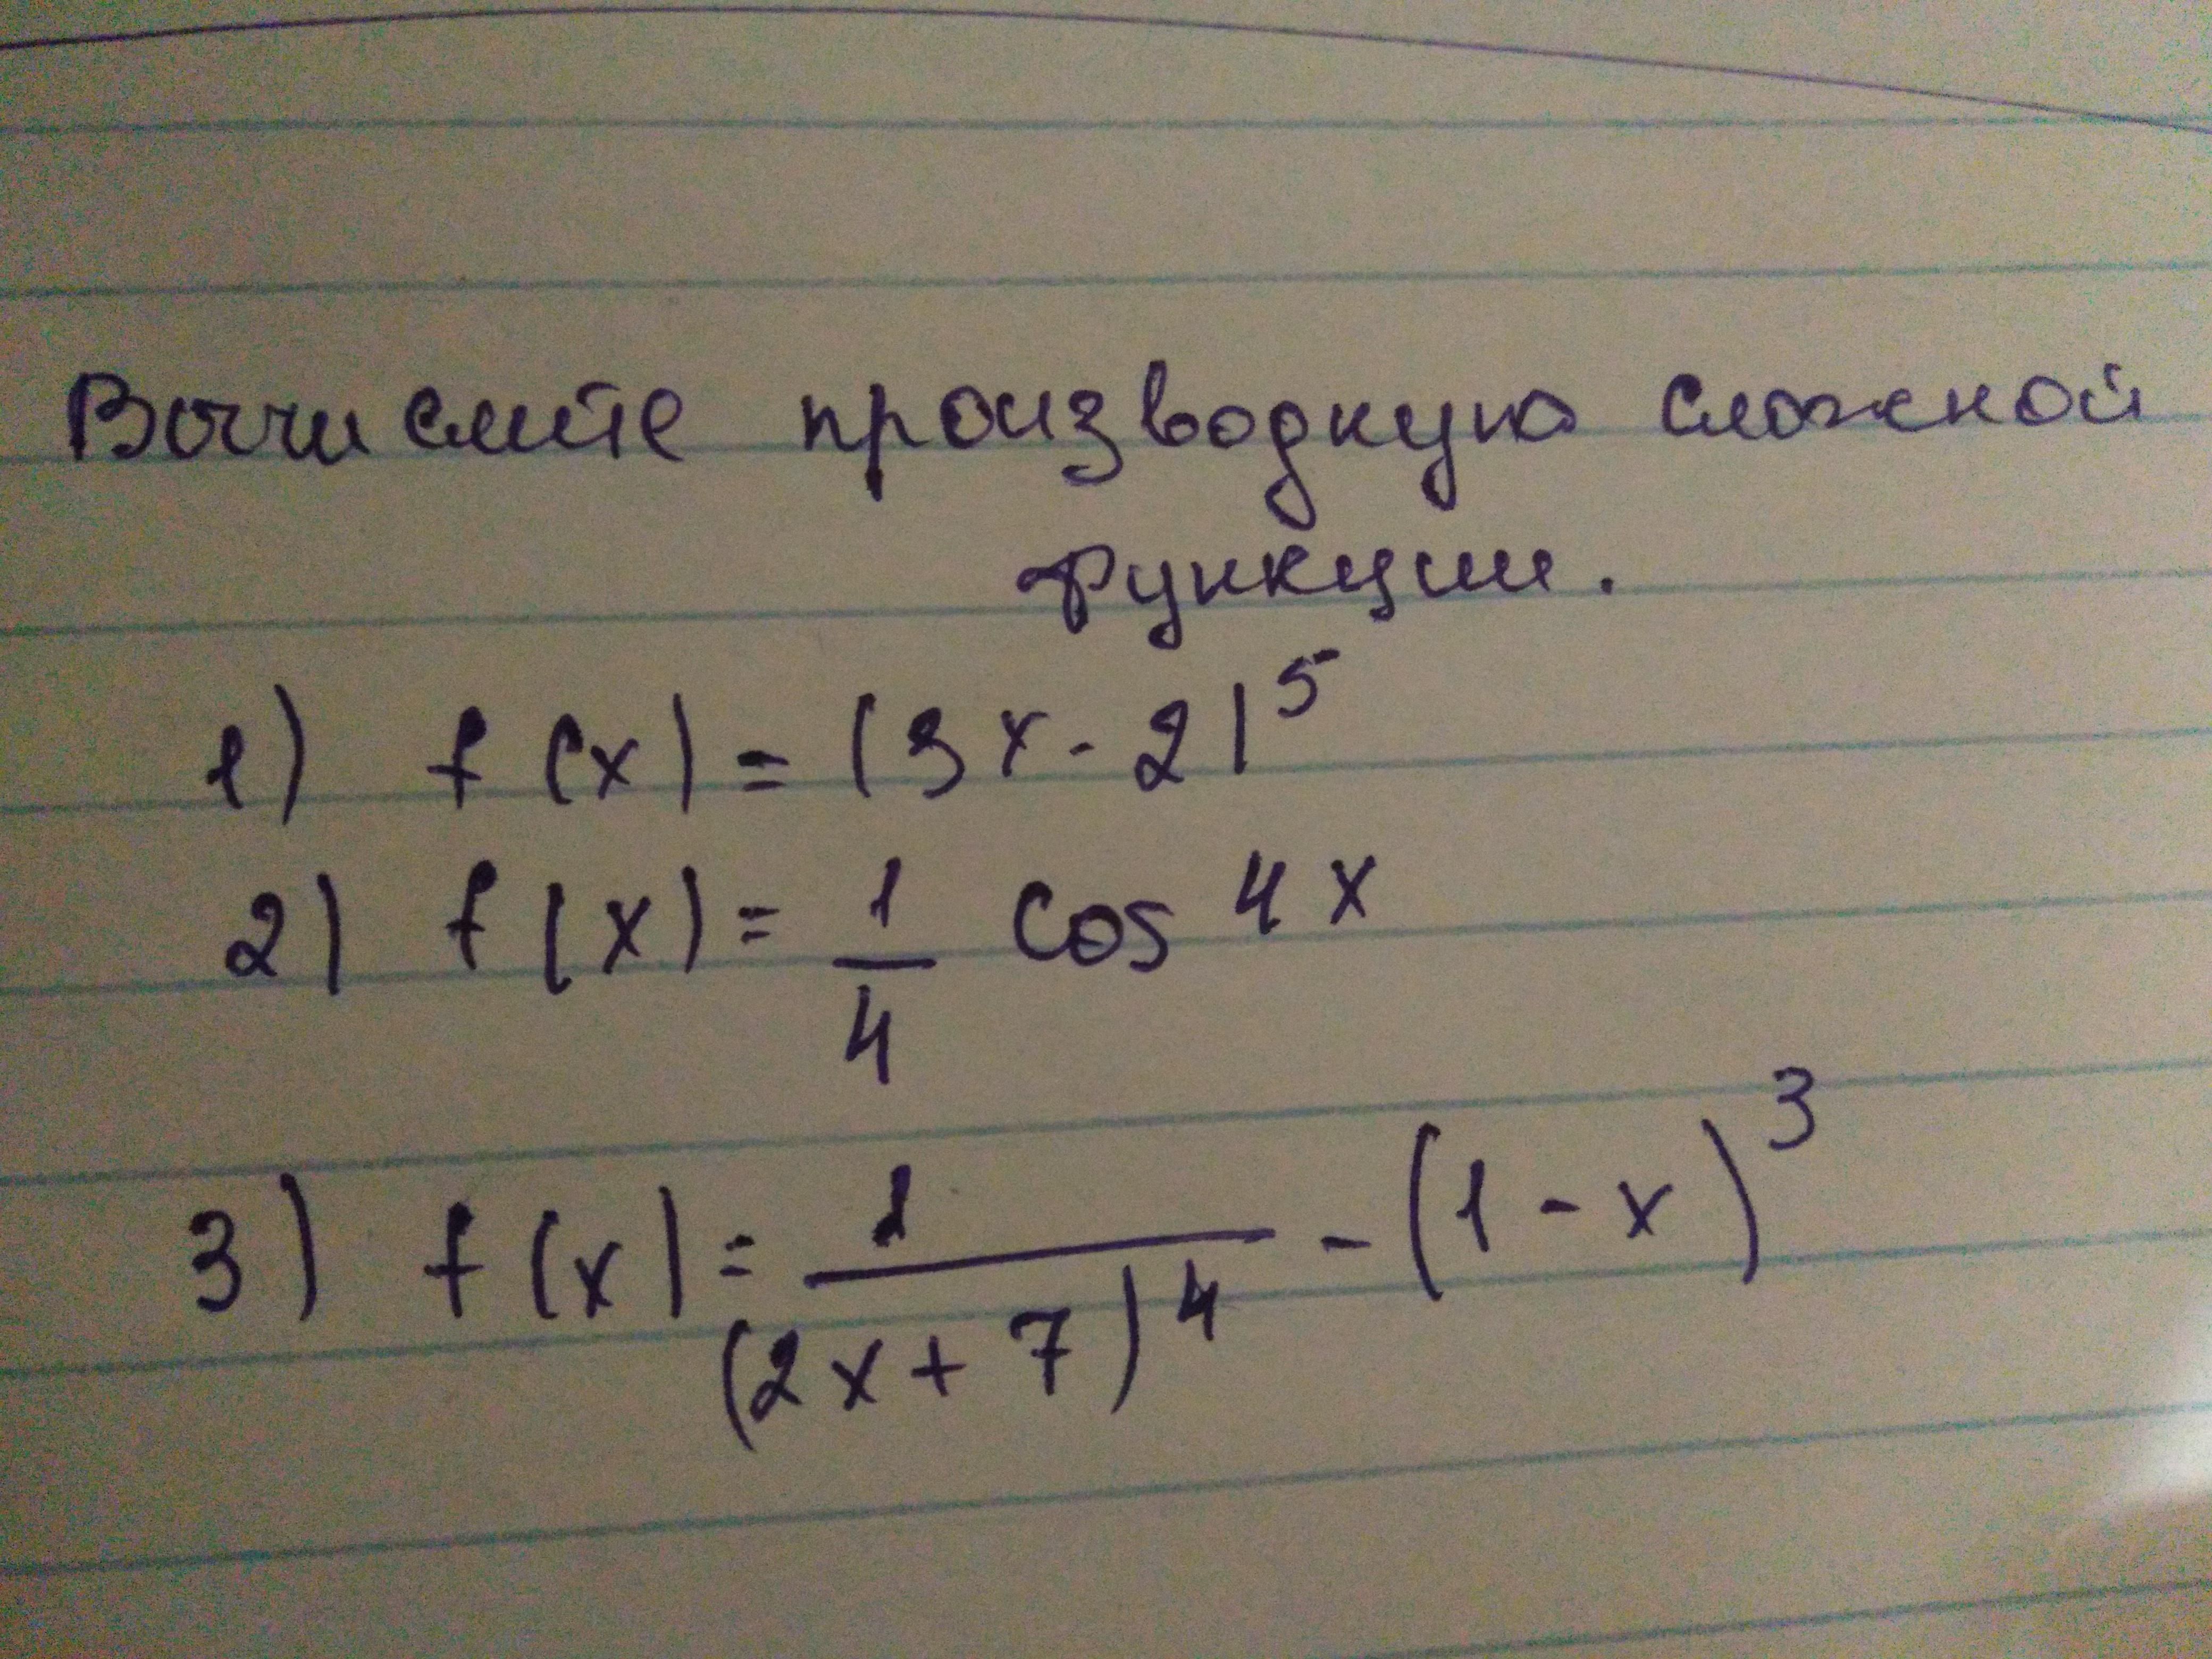 Вычислите производную сложной
функции.
1) f(x) = (3x - 2)⁵
2) f(x) = 1/4 cos 4x
3) f(x) = 1/(2x + 7)⁴ - (1 - x)³